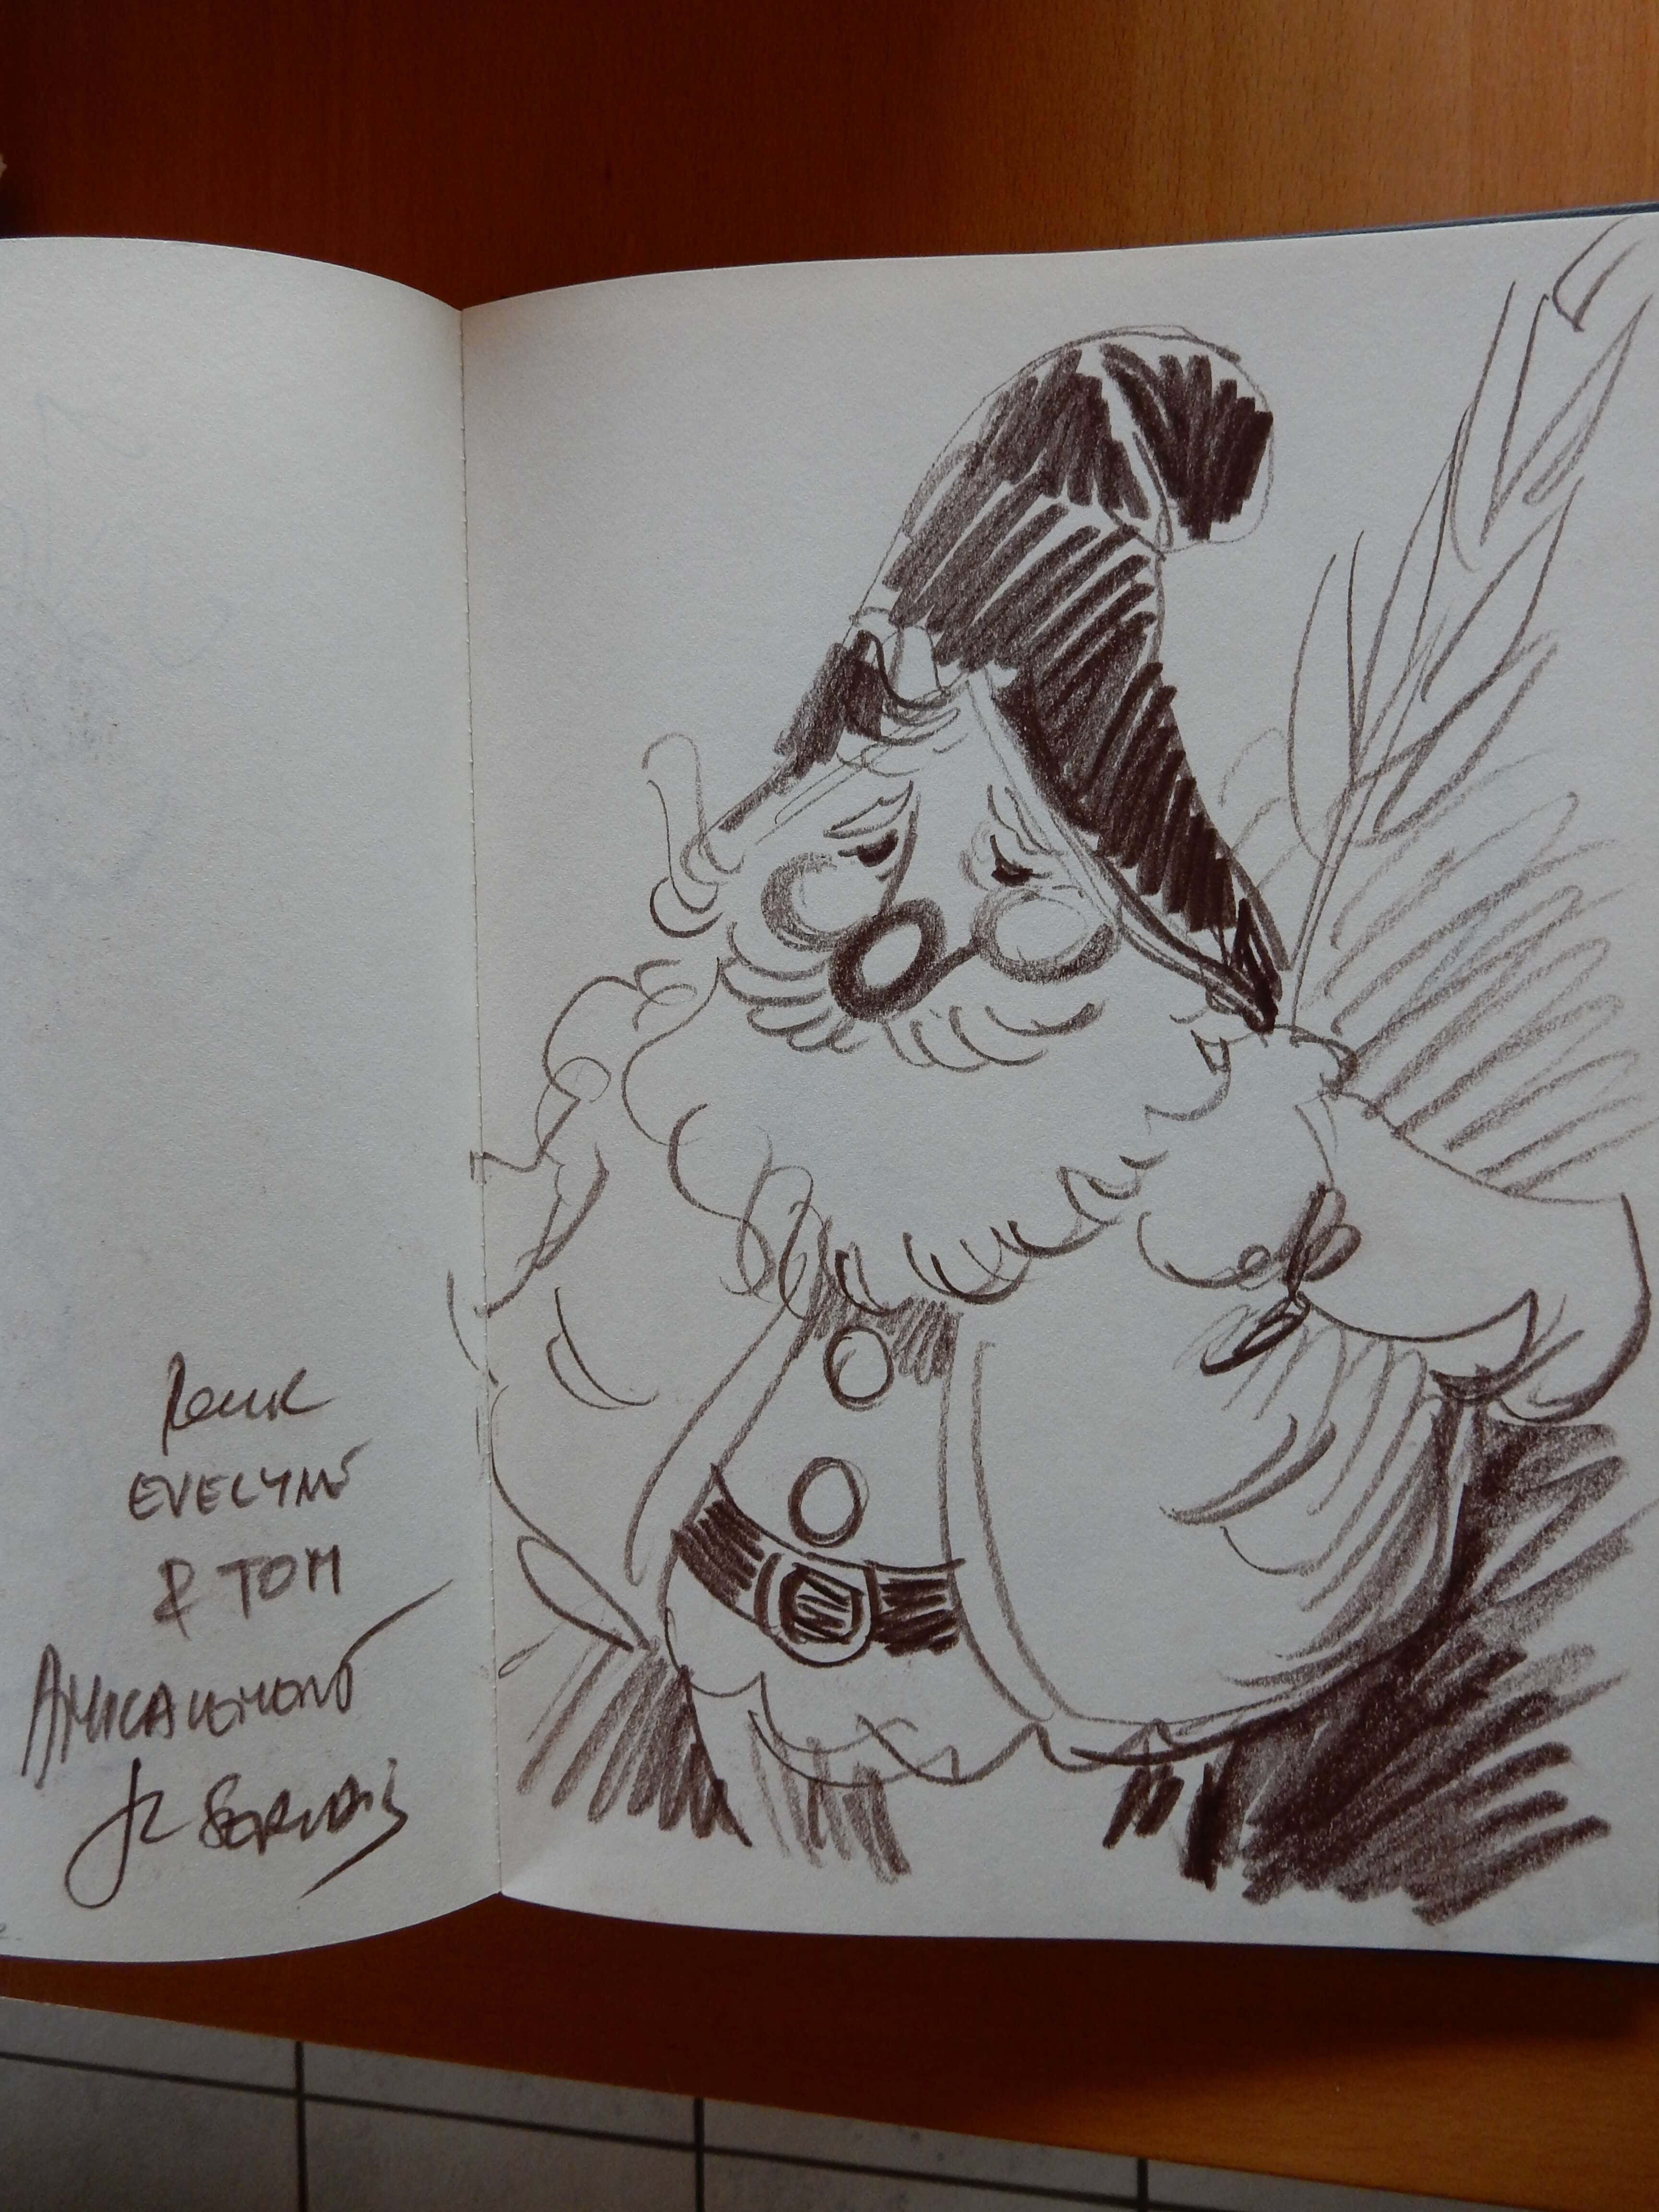 POUR
EVELYNE
& TOM
AMICALEMENT
SERVAIS